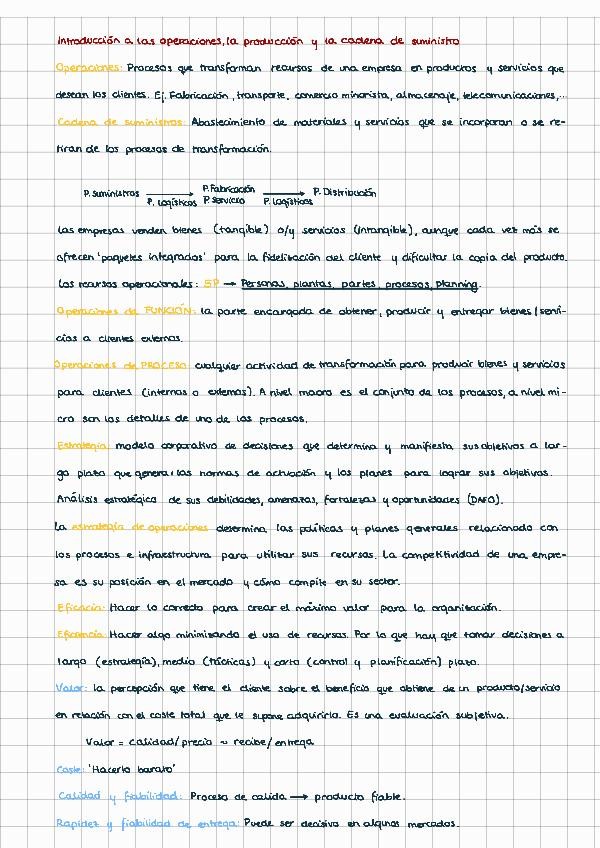 Introducción a las operaciones, la producción y la cadena de suministro
Operaciones: Procesos que transforman recursos de una empresa en productos y servicios que
desean los clientes. Ej. Fabricación, transporte, comercio minorista, almacenaje, telecomunicaciones,...
Cadena de suministros: Abastecimiento de materiales y servicios que se incorporan o se re-
tiran de los procesos de transformación.
P. suministros → P. Fabricación → P. Distribución
P. Logísticos P. Servicio P. Logísticos
Las empresas venden bienes (tangible) o/y servicios (intangible), aunque cada vez más se
ofrecen 'paquetes integrados' para la fidelización del cliente y dificultar la copia del producto.
Los recursos operacionales: 5P → Personas, plantas, partes, procesos, planning.
Operaciones de FUNCIÓN: la parte encargada de obtener, producir y entregar bienes/servi-
cios a clientes externos.
Operaciones de PROCESO: cualquier actividad de transformación para producir bienes y servicios
para clientes (internos o externos). A nivel macro es el conjunto de los procesos, a nivel mi-
cro son los detalles de uno de los procesos.
Estrategia: modelo corporativo de decisiones que determina y manifiesta sus objetivos a lar-
go plazo que genera las normas de actuación y los planes para lograr sus objetivos.
Análisis estratégico de sus debilidades, amenazas, fortalezas y oportunidades (DAFO).
La estrategia de operaciones determina las políticas y planes generales relacionado con
los procesos e infraestructura para utilizar sus recursos. La competitividad de una empre-
sa es su posición en el mercado y cómo compite en su sector.
Eficacia: Hacer lo correcto para crear el máximo valor para la organización.
Eficiencia: Hacer algo minimizando el uso de recursos. Por lo que hay que tomar decisiones a
largo (estrategia), medio (tácticas) y corto (control y planificación) plazo.
Valor: la percepción que tiene el cliente sobre el beneficio que obtiene de un producto/servicio
en relación con el coste total que le supone adquirirlo. Es una evaluación subjetiva.
Valor = calidad/precio ~ recibe/entrega
Coste: 'Hacerlo barato'
Calidad y fiabilidad: Proceso de calida → producto fiable.
Rapidez y fiabilidad de entrega: Puede ser decisivo en algunos mercados.